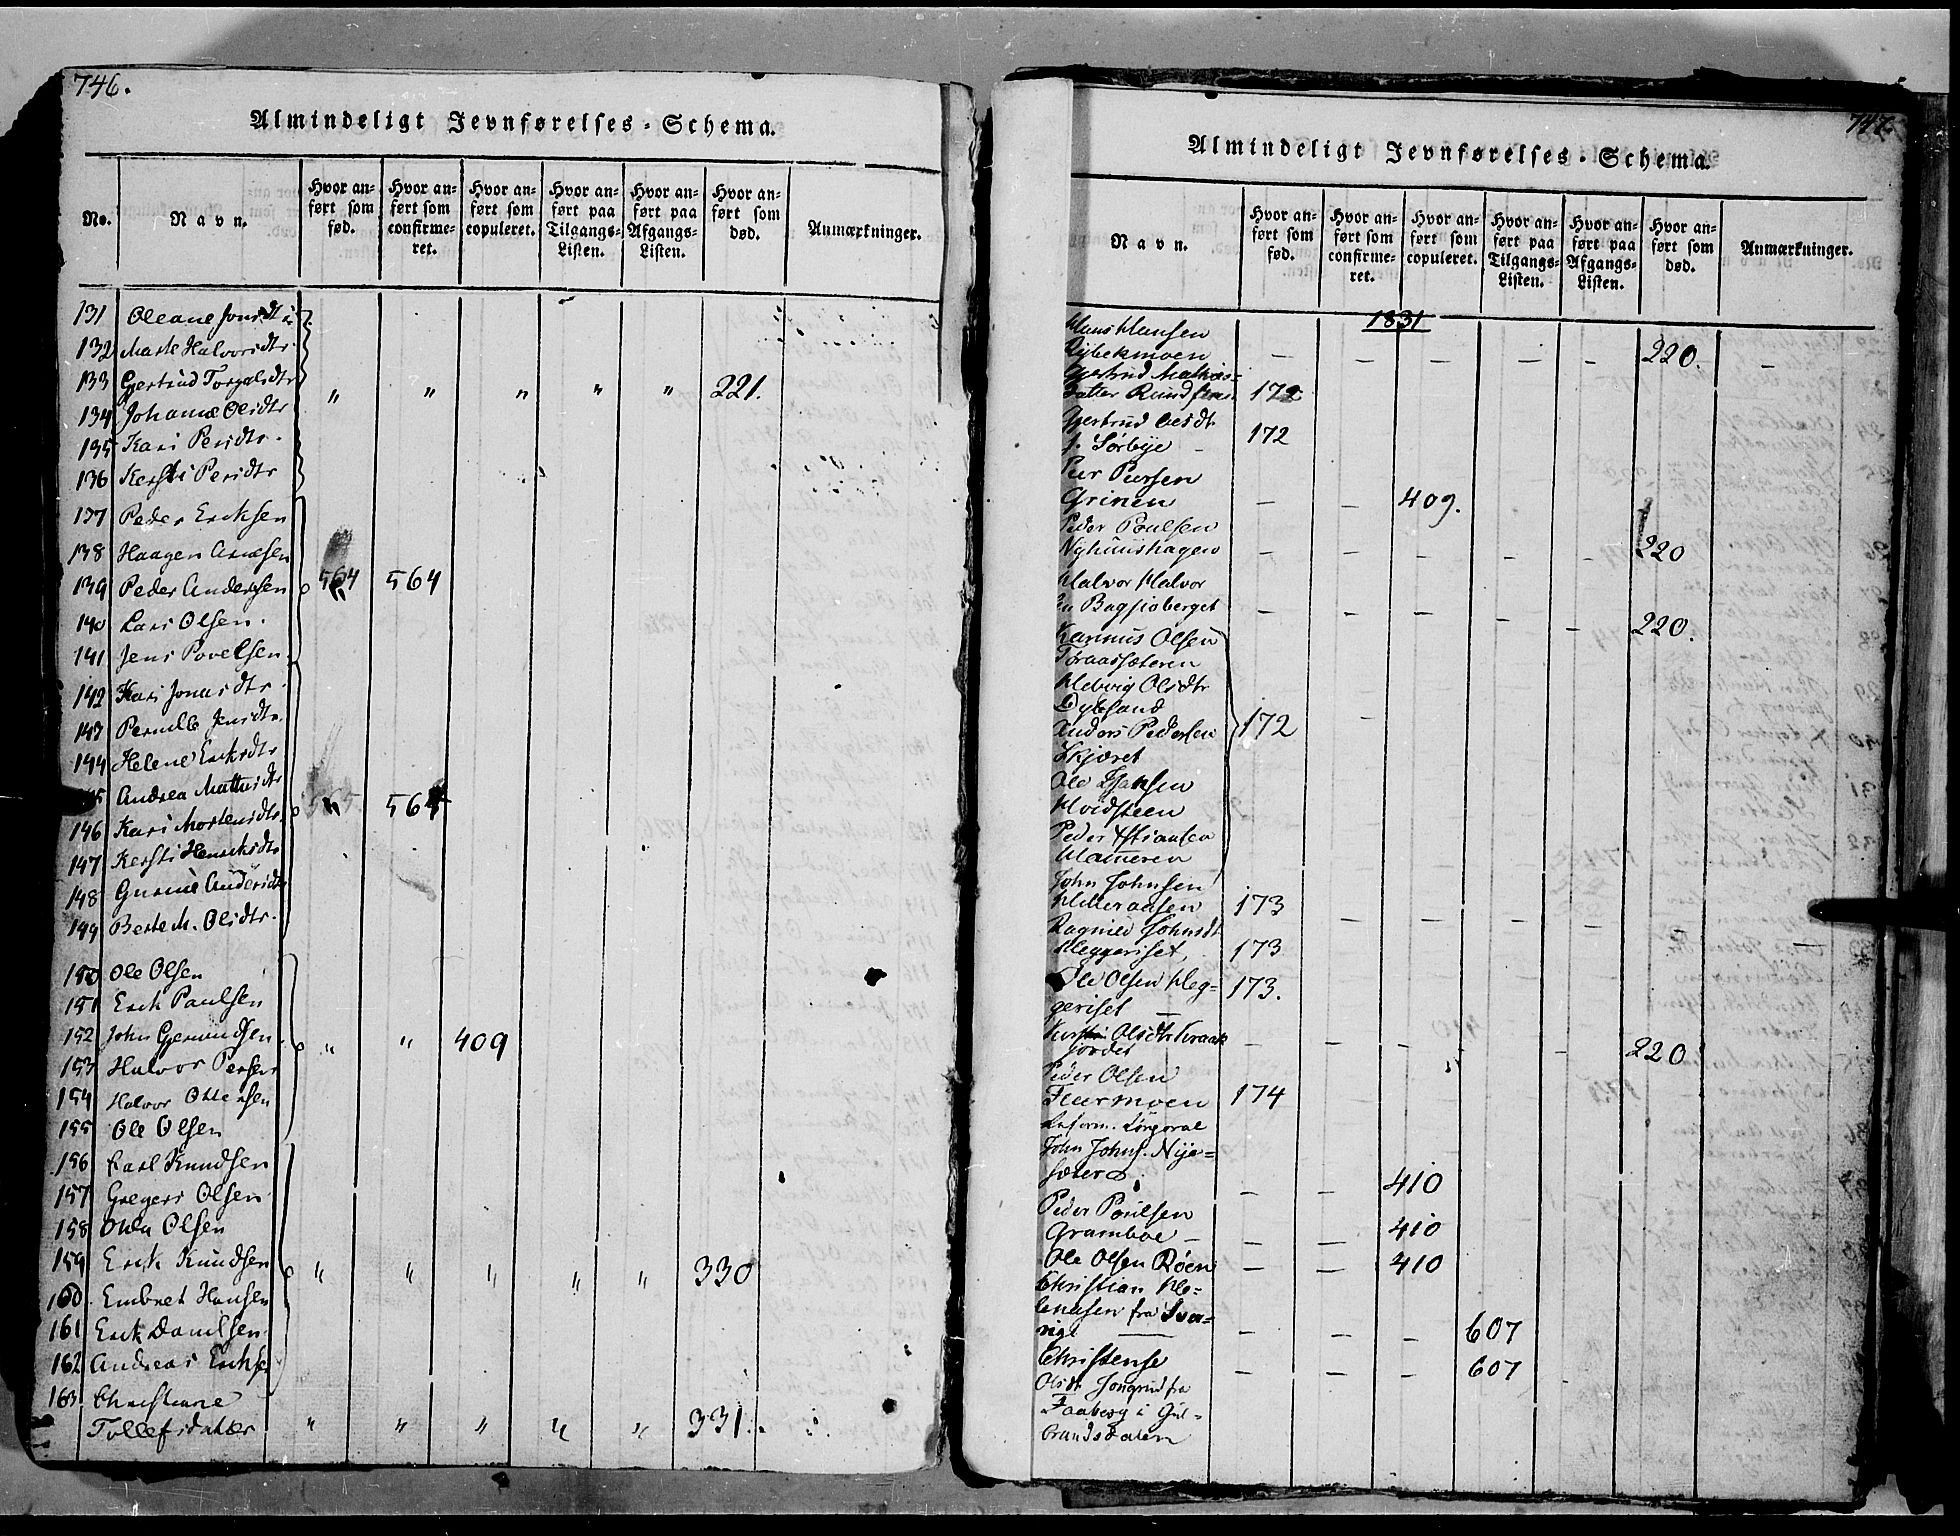 746.
Almindeligt Jevnførelses-Schema.
No.
Navn.
Hvor anført som fød.
Hvor anført som confirmeret.
Hvor anført som copuleret.
Hvor anført paa Tilgangs-Listen.
Hvor anført paa Afgangs-Listen.
Hvor anført som død.
Anmærkninger.
131 Oleane Jonsdtr
132 Marte Halvorsdtr
133 Gertrud Torgalsdtr " " " " " 221.
134 Johanne Olsdtr
135 Kari Persdtr.
136 Kersti Persdtr
137 Peder Ericksen
138 Haagen Arnesen
139 Peder Andersen 564 564
140 Lars Olsen.
141 Jens Povelsen.
142 Kari Jonasdtr.
143 Pernille Jensdtr.
144 Helene Ericksdtr
Andrea Mathisdtr 564
146 Kari Mortensdtr.
147 Kersti Henricksdtr
148 Andersdtr
149 Berte M. Olsdtr.
150 Ole Olsen
151 Erick Paulsen
152 John Gjermundsen " " 409
153 Halvor Persen
154 Halvor Ottersen
155 Ole Olsen
156 Carl Knudsen
157 Gregers Olsen
158 Olsen
159 Erick Knudsen " " " " " 330
160. Embret Hansen
161 Erick Danilsen
162 Andreas Ericksen
163. Christiane
Tollefsdatter " " " " " 331.
747.
Almindeligt Jevnførelses-Schema.
Navn.
Hvor anført som fød.
Hvor anført som confirmeret.
Hvor anført som copuleret.
Hvor anført paa Tilgangs-Listen.
Hvor anført paa Afgangs-Listen.
Hvor anført som død.
Anmærkninger.
1831
Hans Hansen
Rybekmoen — — — — — 220. —
Gjertrud Mathias=
datter Rundfloen 172
Gjertrud Olsdt.
Sørbye — 172
Peer Peersen
Grinen — — 409.
Peder Poulsen
Nyhuushagen — — — — — 220
Halvor Halvor
sen Bagsjøberget — — — — — 220.
Olsen
Hedvig Olsdtr
Anders Pedersen 172
Skjæret
Ole Hansen
Hvidsteen
Peder
Hammeren
John Johnsen
173 — — — —
Ragnild Johnsdt.
Heggeriset, 173
Ole Olsen Heg=
geriset — 173.
Olsdtr Kraak
jordet — — — — 220
Peder Olsen
Fluermoen 174
John Johns. Nye=
sæter — — 410
Peder Poulsen
Gramboe — — — 410
Ole Olsen Røen — — 410
Christian He=
lenasen fra Sve=
rige — — — — 607
Christense — — — 607
Olsdt. Jongrud fra
Faaberg i Gul=
brandsdalen